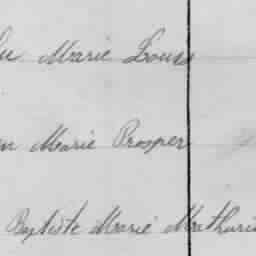 Marie Louis
Marie Prosper
Baptiste Marie Mathurin